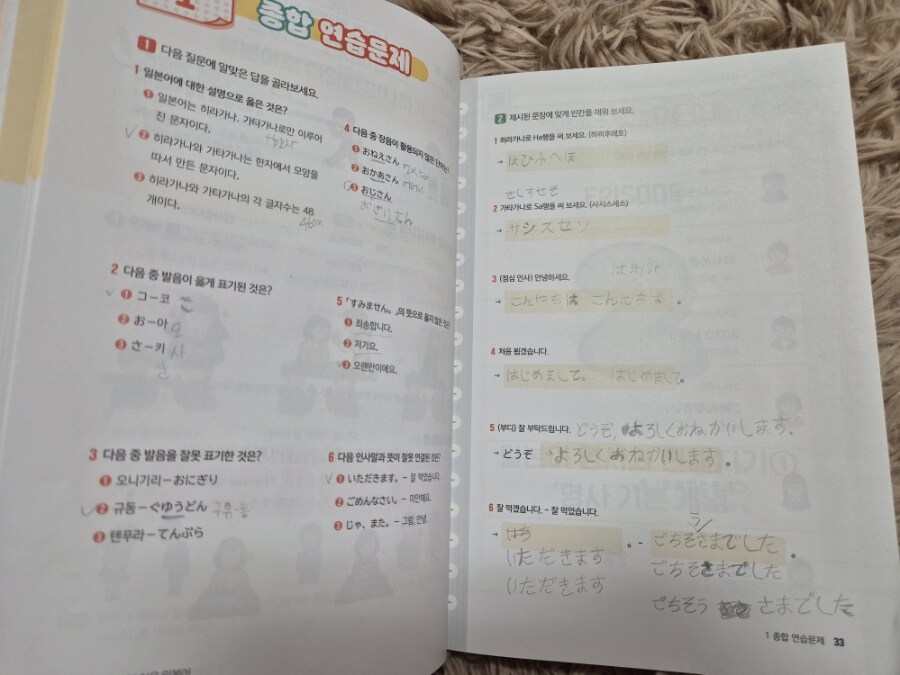 종합 연습문제
1 다음 질문에 알맞은 답을 골라보세요.
1 일본어에 대한 설명으로 옳은 것은?
❶ 일본어는 히라가나, 가타가나로만 이루어
진 문자이다.
✓ ❷ 히라가나와 가타가나는 한자에서 모양을
따서 만든 문자이다.
❸ 히라가나와 가타가나의 각 글자수는 48
개이다.
2 다음 중 발음이 옳게 표기된 것은?
✓ ❶ コ－코
❷ お－아 오
❸ さ－키 사
3 다음 중 발음을 잘못 표기한 것은?
❶ 오니기리－おにぎり
✓ ❷ 규동－ぐゆうどん
❸ 텐푸라－てんぷら
4 다음 중 장음이 활용되지 않은
❶ おねえさん
❷ おかあさん
❸ おじさん
おじいさん
5 「すみません。」의 뜻으로 옳지 않은 것은?
❶ 죄송합니다.
❷ 저기요.
❸ 오랜만이에요.
6 다음 인사말과 뜻이 잘못 연결된 것은?
✓ ❶ いただきます。－ 잘 먹었습니다.
❷ ごめんなさい。－ 미안해요.
❸ じゃ、また。－ 그럼, 안녕.
2 제시된 문장에 맞게 빈칸을 채워 보세요.
1 히라가나로 Ha행을 써 보세요. (하히후헤호)
→ はひふへほ
さしすせそ
2 가타가나로 Sa행을 써 보세요. (사시스세소)
→ サシスセソ
3 (점심 인사) 안녕하세요.
→ こんにちは こんにちは 。
4 처음 뵙겠습니다.
→ はじめまして。 はじめまして 。
5 (부디) 잘 부탁드립니다. どうぞ, よろしくおねがいします.
→ どうぞ よろしくおねがいします 。
6 잘 먹겠습니다. － 잘 먹었습니다.
う
→ 。－ ごちそさまでした 。
いただきます ごちそさまでした
いただきます
ごちそう さまでした
1 종합 연습문제 33